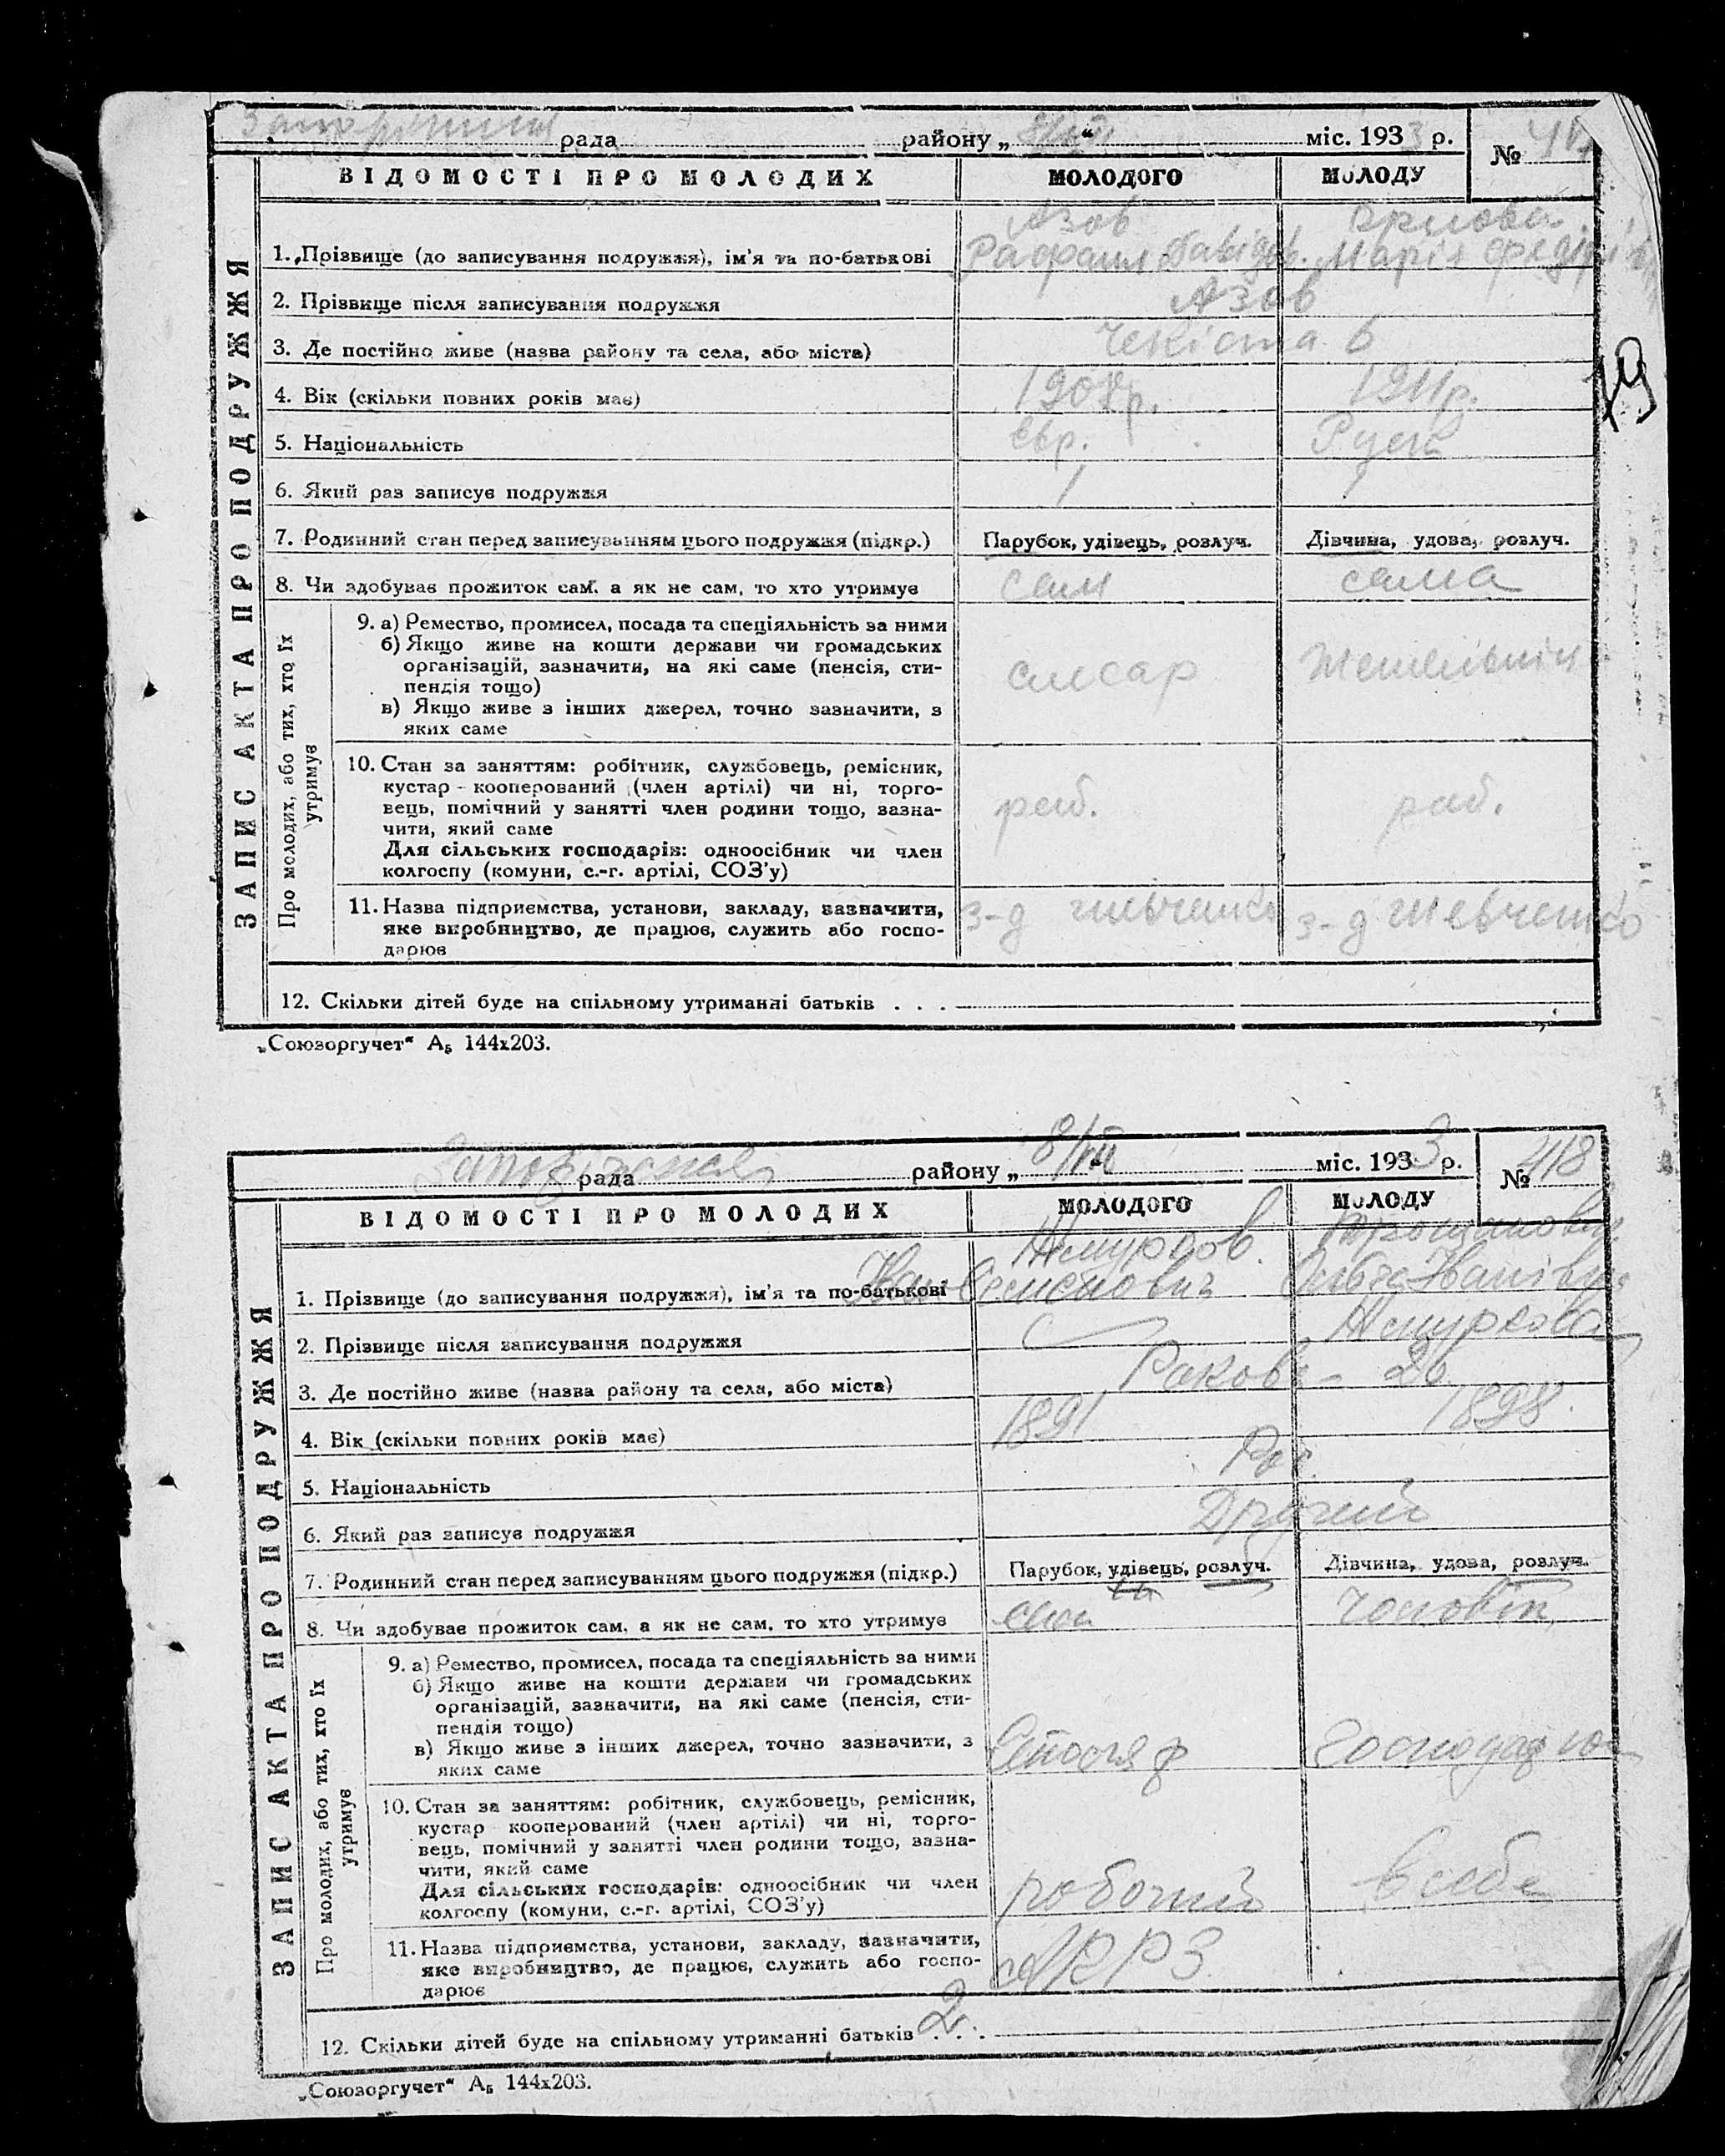 рада району „ “ міс. 1933 р.
№
ВІДОМОСТІ ПРО МОЛОДИХ МОЛОДОГО МОЛОДУ
ЗАПИС АКТА ПРО ПОДРУЖЖЯ
Азов Орлова
1. Прізвище (до записування подружжя), ім'я та по-батькові Рафаил Давідов. Марія
2. Прізвище після записування подружжя Азов
3. Де постійно живе (назва району та села, або міста) Чекіста 6
4. Вік (скільки повних років має) 1908р. 1911р.
5. Національність Євр. Руск
6. Який раз записує подружжя 1 1
7. Родинний стан перед записуванням цього подружжя (підкр.) Парубок, удівець, розлуч. Дівчина, удова, розлуч.
8. Чи здобуває прожиток сам, а як не сам, то хто утримує сам сама
Про молодих, або тих, хто їх утримує
9. а) Ремество, промисел, посада та спеціяльність за ними
б) Якщо живе на кошти держави чи громадських
організацій, зазначити, на які саме (пенсія, сти-
пендія тощо) слесар
в) Якщо живе з інших джерел, точно зазначити, з
яких саме
10. Стан за заняттям: робітник, службовець, ремісник,
кустар - кооперований (член артілі) чи ні, торго-
вець, помічний у занятті член родини тощо, зазна- раб. раб.
чити, який саме
Для сільських господарів: одноосібник чи член
колгоспу (комуни, с.-г. артілі, СОЗ'у)
11. Назва підприємства, установи, закладу, зазначити, з-д Шевченко з-д Шевченко
яке виробництво, де працює, служить або госпо-
дарює
12. Скільки дітей буде на спільному утриманні батьків . . .
„Союзоргучет“ А₅ 144х203.
19
рада району „ 8/VII “ міс. 1933 р.
№ 418
ВІДОМОСТІ ПРО МОЛОДИХ МОЛОДОГО МОЛОДУ
ЗАПИС АКТА ПРО ПОДРУЖЖЯ
Жмурков
1. Прізвище (до записування подружжя), ім'я та по-батькові Іван Семенович Ольга Іванівна
2. Прізвище після записування подружжя Жмуркова
3. Де постійно живе (назва району та села, або міста) Ракова - 20
4. Вік (скільки повних років має) 1891 1898.
5. Національність Рос.
6. Який раз записує подружжя Другий
7. Родинний стан перед записуванням цього подружжя (підкр.) Парубок, удівець, розлуч. Дівчина, удова, розлуч.
8. Чи здобуває прожиток сам, а як не сам, то хто утримує сам Чоловік
Про молодих, або тих, хто їх утримує
9. а) Ремество, промисел, посада та спеціяльність за ними
б) Якщо живе на кошти держави чи громадських
організацій, зазначити, на які саме (пенсія, сти-
пендія тощо)
в) Якщо живе з інших джерел, точно зазначити, з Столяр
яких саме
10. Стан за заняттям: робітник, службовець, ремісник,
кустар кооперований (член артілі) чи ні, торго-
вець, помічний у занятті член родини тощо, зазна-
чити, який саме
Для сільських господарів: одноосібник чи член робочий в себе
колгоспу (комуни, с.-г. артілі, СОЗ'у)
11. Назва підприємства, установи, закладу, зазначити,
яке виробництво, де працює, служить або госпо-
дарює
12. Скільки дітей буде на спільному утриманні батьків . . . 2
„Союзоргучет“ А₅ 144х203.